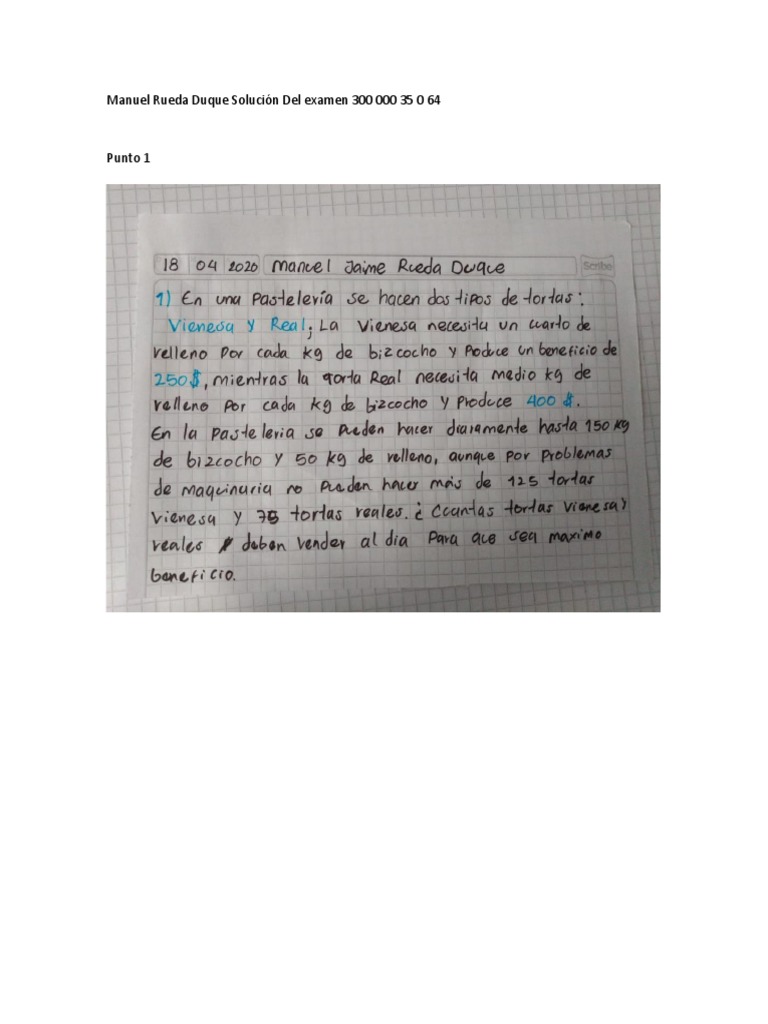 Manuel Rueda Duque Solución Del examen 300 000 35 0 64
Punto 1
18 04 2020 Manuel Jaime Rueda Duque Scribe
1) En una Pastelería se hacen dos tipos de tortas:
Vienesa y Real; La Vienesa necesita un cuarto de
relleno Por cada kg de bizcocho y Poduce un beneficio de
250$, mientras la torta Real necesita medio kg de
relleno Por cada kg de bizcocho y Produce 400 $.
En la Pasteleria se Pueden hacer diaramente hasta 150 kg
de bizcocho y 50 kg de relleno, aunque por Problemas
de maquinaria no Pueden hacer más de 125 tortas
Vienesa y 75 tortas reales. ¿ Ccuantas tortas Vienesa y
reales deben Vender al dia Para que sea maximo
beneficio.